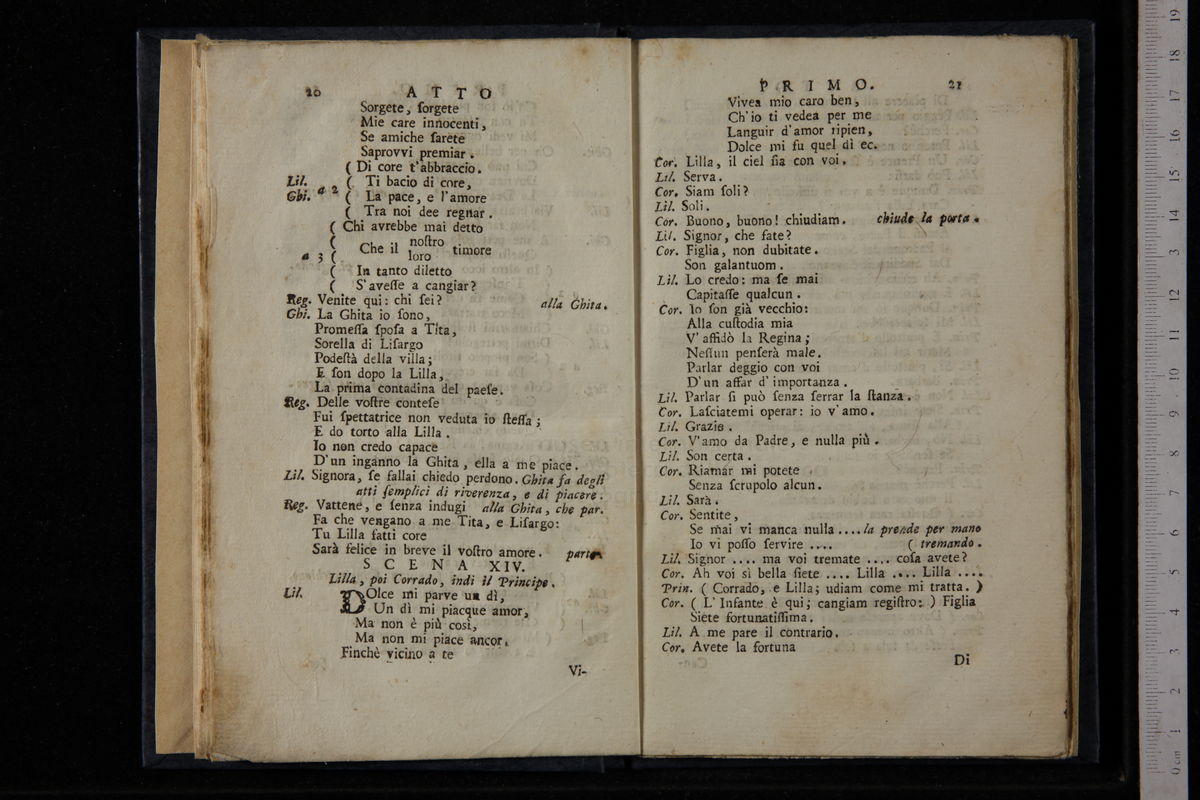 20 ATTO
Sorgete, ſorgete
Mie care innocenti,
Se amiche ſarete
Saprovvi premiar.
( Di core t'abbraccio.
Lil. ( Ti bacio di core,
Ghi. a 2 ( La pace, e l'amore
( Tra noi dee regnar.
( Chi avrebbe mai detto
( Che il noſtro timore
a 3 ( loro
( In tanto diletto
( S'aveſſe a cangiar?
Reg. Venite qui: chi ſei? alla Ghita.
Ghi. La Ghita io ſono,
Promeſſa ſpoſa a Tita,
Sorella di Liſargo
Podeſtà della villa;
E ſon dopo la Lilla,
La prima contadina del paeſe.
Reg. Delle voſtre conteſe
Fui ſpettatrice non veduta io ſteſſa;
E do torto alla Lilla.
Io non credo capace
D'un inganno la Ghita, ella a me piace.
Lil. Signora, ſe fallai chiedo perdono. Ghita fa degli
atti ſemplici di riverenza, e di piacere.
Reg. Vattene, e ſenza indugi alla Ghita, che par.
Fa che vengano a me Tita, e Liſargo:
Tu Lilla fatti core
Sarà felice in breve il voſtro amore. parte.
SCENA XIV.
Lilla, poi Corrado, indi il Principe.
Lil. DOlce mi parve un dì,
Un dì mi piacque amor,
Ma non è più così,
Ma non mi piace ancor.
Finchè vicino a te
Vi-
PRIMO. 21
Vivea mio caro ben,
Ch'io ti vedea per me
Languir d'amor ripien,
Dolce mi fu quel dì ec.
Cor. Lilla, il ciel ſia con voi.
Lil. Serva.
Cor. Siam ſoli?
Lil. Soli.
Cor. Buono, buono! chiudiam. chiude la porta.
Lil. Signor, che fate?
Cor. Figlia, non dubitate.
Son galantuom.
Lil. Lo credo: ma ſe mai
Capitaſſe qualcun.
Cor. Io ſon già vecchio:
Alla cuſtodia mia
V'affidò la Regina;
Neſſun penſerà male.
Parlar deggio con voi
D'un affar d'importanza.
Lil. Parlar ſi può ſenza ſerrar la ſtanza.
Cor. Laſciatemi operar: io v'amo.
Lil. Grazie.
Cor. V'amo da Padre, e nulla più.
Lil. Son certa.
Cor. Riamar mi potete
Senza ſcrupolo alcun.
Lil. Sarà.
Cor. Sentite,
Se mai vi manca nulla .... la prende per mano
Io vi poſſo ſervire .... ( tremando.
Lil. Signor .... ma voi tremate .... coſa avete?
Cor. Ah voi sì bella ſiete .... Lilla .... Lilla ....
Prin. ( Corrado, e Lilla; udiam come mi tratta. )
Cor. ( L'Infante è qui; cangiam regiſtro: ) Figlia
Siete fortunatiſſima.
Lil. A me pare il contrario.
Cor. Avete la fortuna
Di